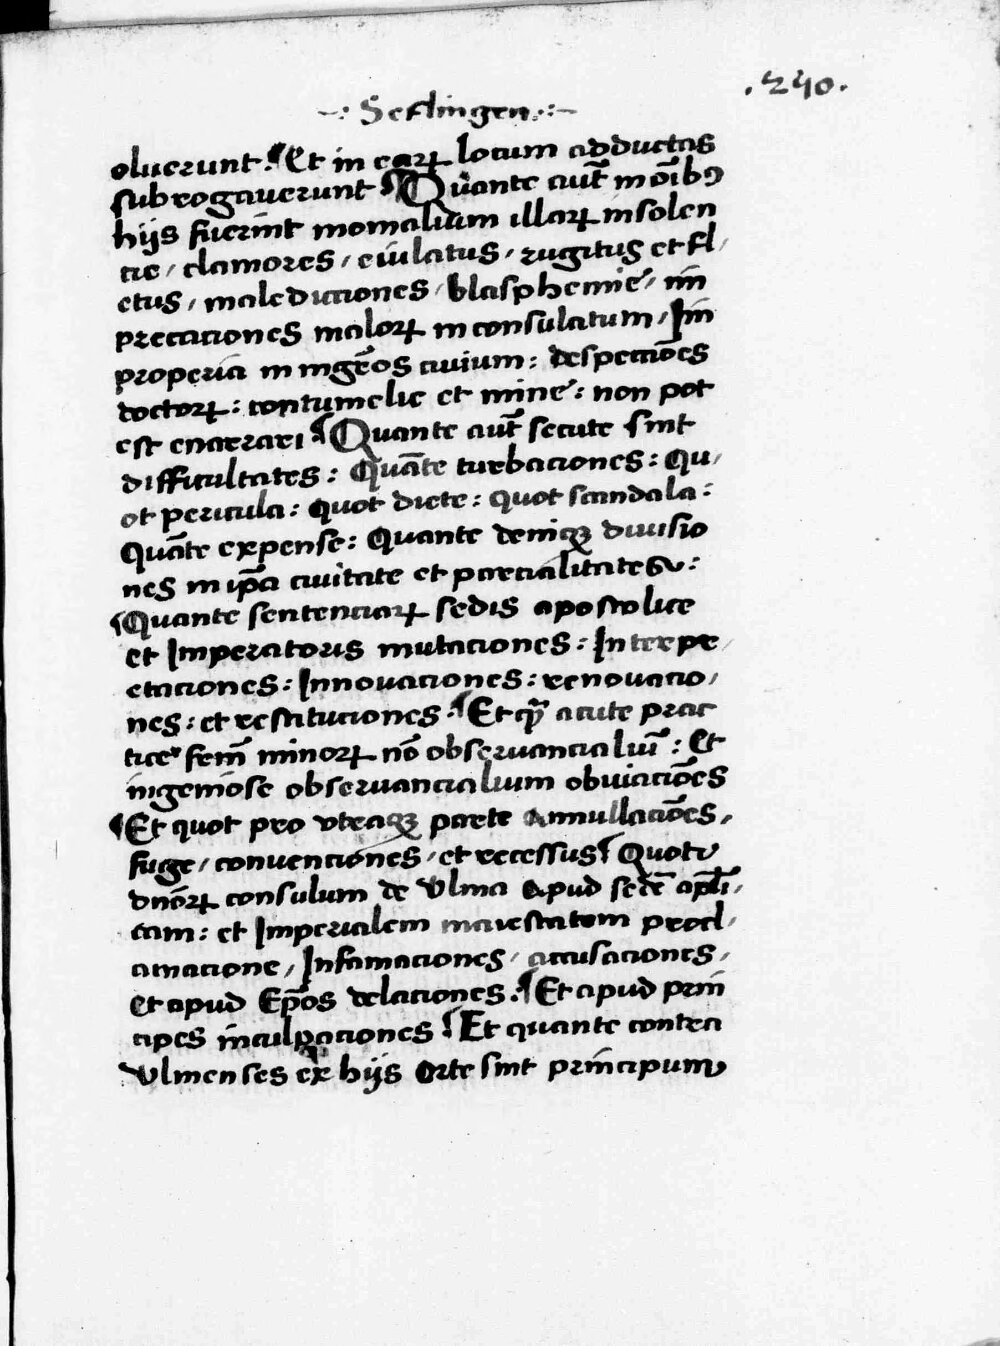 .240.
-: Seflingen :-
oluerunt. ¶ Et in earꝝ locum adductas
subrogauerunt ¶ Quante aut̄ in oīb9
hijs fuerint monialium illarꝝ insolen
tie / clamores / eiulatus / rugitus et fl/
etus / maledictiones / blasphemie / im
precaciones malorꝝ in consulatum / Im
properia in ingēos ciuium : despectiōes
doctorꝝ : contumelie et mine : non pot
est enarrari ¶ Quante aut̄ secute sint
difficultates : Quāte turbaciones : Qu/
ot pericula : Quot diete : Quot scandala :
Quāte expense : Quante deniqꝫ diuisio
nes in ip̄a ciuitate et parcialitates :
¶ Quante sentenciarꝝ sedis apostolice
et Imperatoris mutaciones : Interpr/
etaciones : Innouaciones : renouacio/
nes : et restituciones . ¶ Et qā acute prac
tice fem̄ minorꝝ nō obseruancialiū : Et
ingeniose obseruancialium obuiaciōes
¶ Et quot pro vtraqꝫ parte Annullaciōes /
fuge / conuenciones / et recessus ¶ Quot
dn̄orꝝ consulum de Vlma Apud sedē apl̄i/
cam : et Imperialem maiestatem procl/
amacione / Infamaciones / accusaciones /
et apud Ep̄os delaciones . ¶ Et apud prin
cipes inculpaciones ¶ Et quante contra
Vlmenses ex hijs Orte sint principum